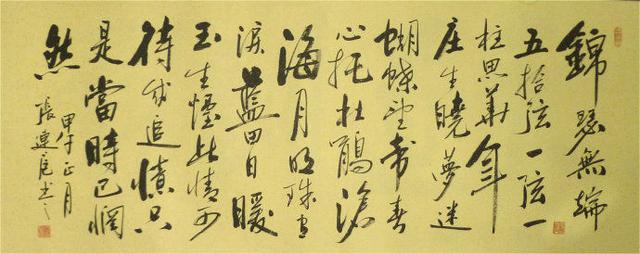 錦瑟無端
五拾弦一弦一
柱思華年
庄生曉夢迷
蝴蝶望帝春
心托杜鵑滄
海月明珠有
淚藍田日暖
玉生煙此情可
待成追憶只
是當時已惘
然
甲午正月
張連书